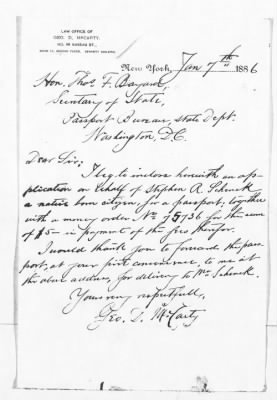 LAW OFFICE OF
GEO. D. McCARTY,
New York, Jan 7th 1886
Hon. Thos. F. Bayard,
Secretary of State,
Passport Bureau, State Dept.
Washington, D.C.
Dear Sir,
I beg to inclose herewith an ap-
plication on behalf of Stephen R. Schenck
a native born citizen, for a passport, together
with a money order No for the sum
of $5— in payment of the fees therefor.
I would thank you to forward the pass-
port, at your first convenience, to me at
the above address, for delivery to Mr. Schenck.
Yours very respectfull,
Geo. D. McCarty